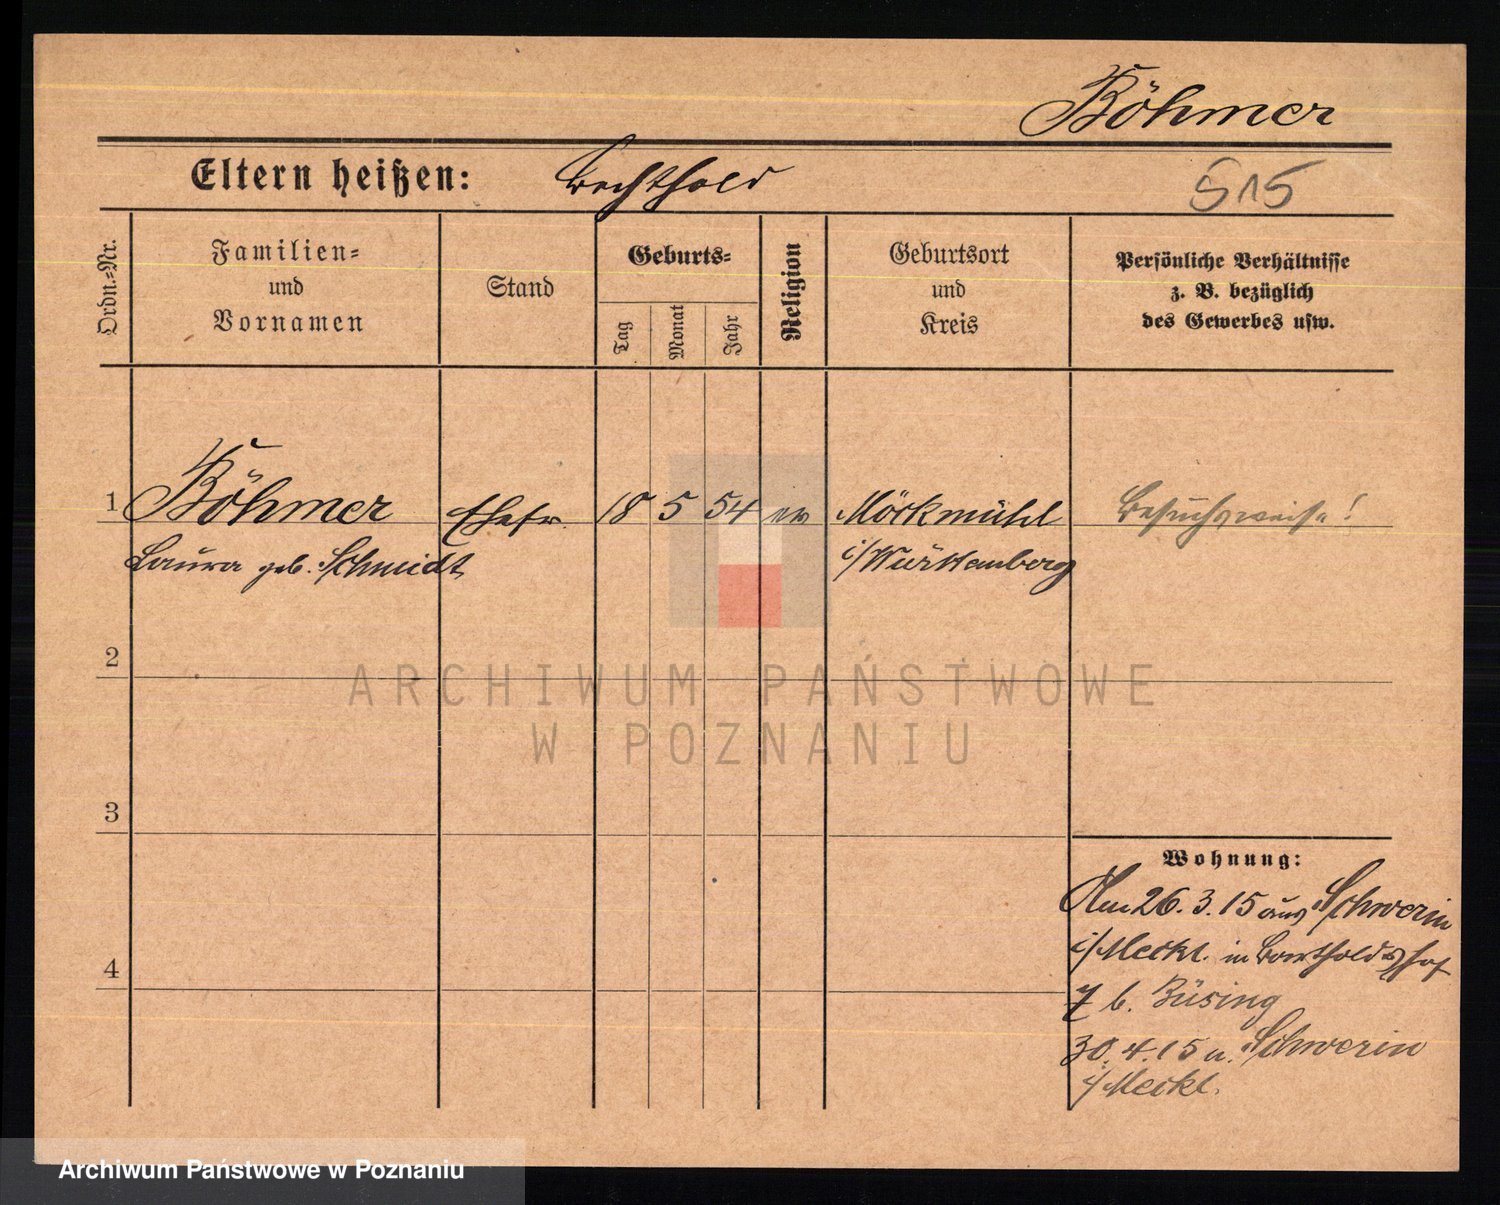 Böhmer
Eltern heißen: Bechthold
515
Ordn.=Nr.
Familien=
und
Vornamen
Stand
Geburts=
Tag
Monat
Jahr
Religion
Geburtsort
und
Kreis
Persönliche Verhältnisse
z. B. bezüglich
des Gewerbes usw.
1 Böhmer Ehefr. 18 5 54 ev Möckmühl Besuchsweise!
Laura geb. Schmidt i/Württemberg
2
3
4
Wohnung:
Am 26. 3. 15 aus Schwerin
i/Meckl. in Bartholdshof
7 b. Büsing
30. 4. 15 n. Schwerin
i/Meckl.
ARCHIWUM PAŃSTWOWE
W POZNANIU
Archiwum Państwowe w Poznaniu